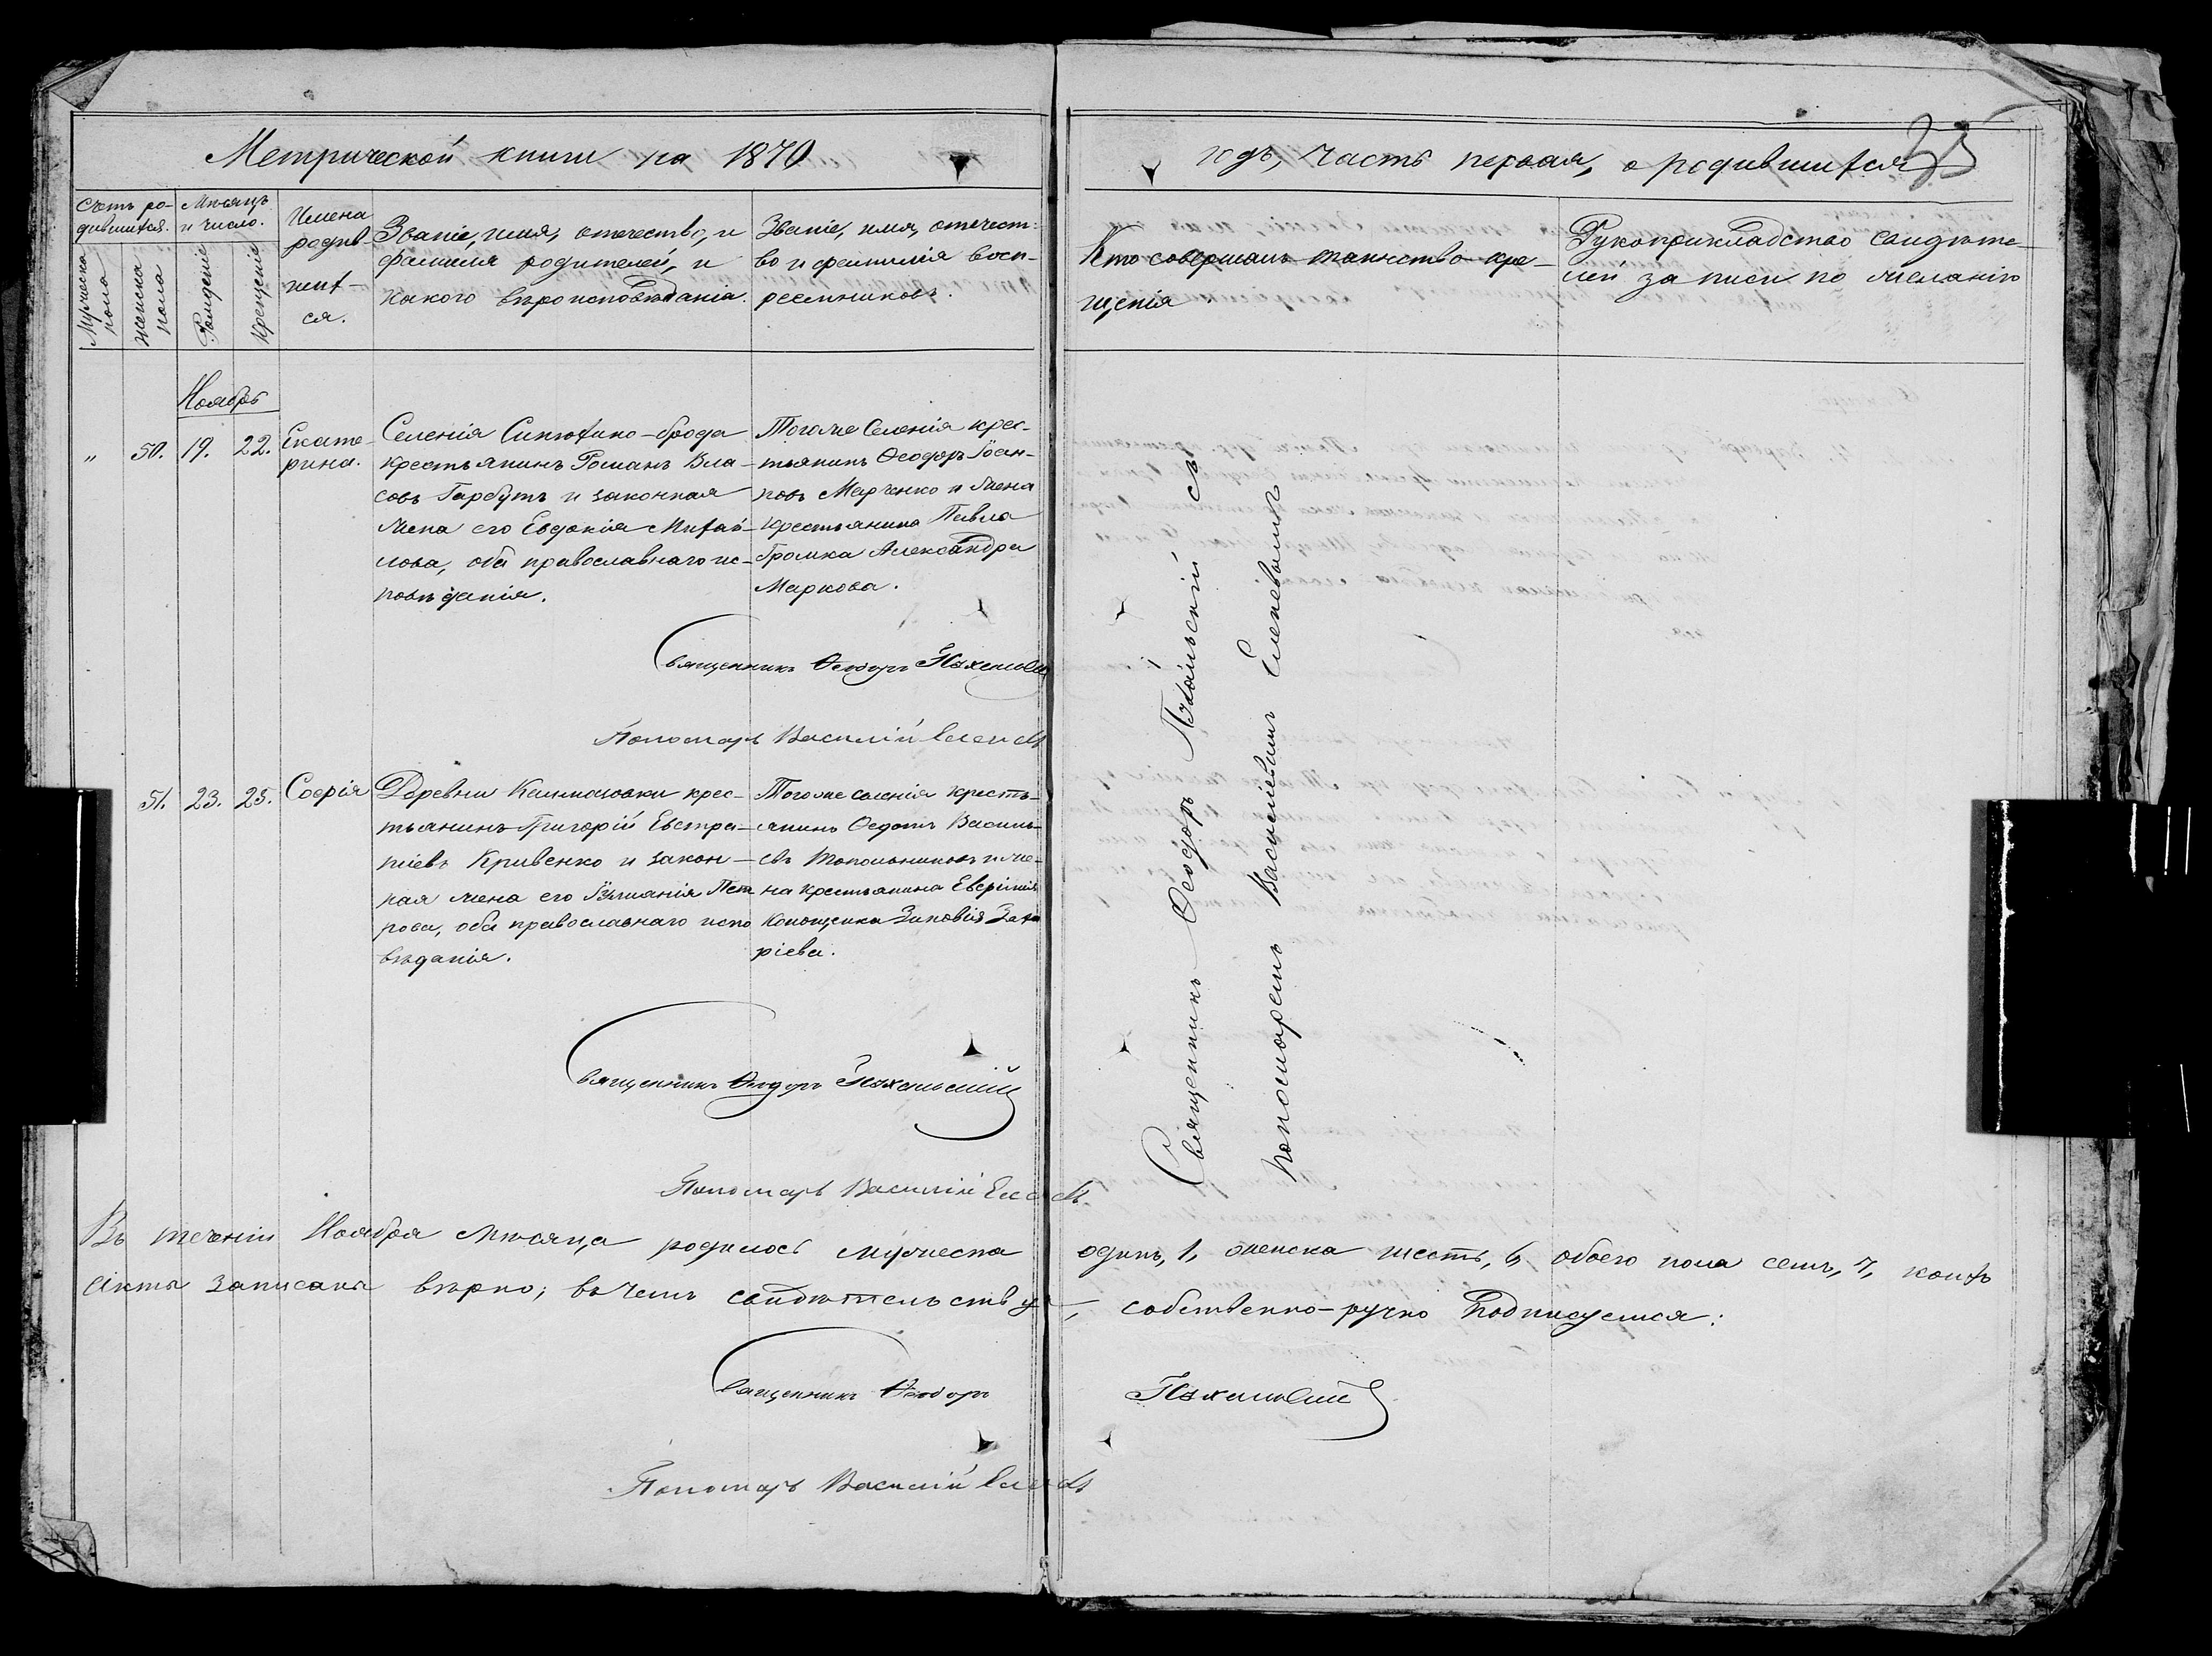 Метрической книги на 1870
годъ, часть первая, о родившихся
35
Счетъ ро-
дившихся.
Мѣсяцъ
и число.
Мужеска
пола
Женска
пола
Рожденіе
Крещеніе
Имена
родив-
ших-
ся.
Званіе, имя, отечество, и
фамилія родителей, и
какого вѣроисповѣданія.
Званіе, имя, отечест-
во и фамилія восп-
реемниковъ.
Кто совершалъ таинство кре-
щенія
Рукоприкладство свидѣте-
лей записи по желанію
Ноябрь
„ 50. 19. 22.
Екате-
рина.
Селенія Синюхино-брода
крестьянинъ Романъ Вла-
совъ Гарбузъ и законная
жена его Евдокія Михай-
лова, оба православнаго ис-
повѣданія.
Того же Селенія крес-
тьянинъ Ѳеодоръ Іоан-
новъ Марченко и жена
крестьянина Павла
Громка Александра
Маркова.
Священникъ Ѳеодоръ
Пономарь Василій
51. 23. 25.
Софія
Деревни крес-
тьянинъ Григорій Евстра-
тіевъ Кривенко и закон-
ная жена его Іуліанія Пет
рова, оба православнаго испо
вѣданія.
Того же селенія кресть-
янинъ Ѳедотъ Василь-
евъ и же-
на крестьянина Евфимія
Зиновія Заха
ріева.
Священникъ Ѳеодоръ
Пономарь Василій
Священникъ Ѳеодоръ съ
пономаремъ Василіевымъ
Въ теченіи Ноября мѣсяца родилось мужеска одинъ, 1, женска шесть, 6, обоего пола семь, 7, коихъ
акты записаны вѣрно; въ чемъ свидѣтельствуя, собственно-ручно подписуемся:
Священникъ Ѳеодоръ
Пономарь Василій